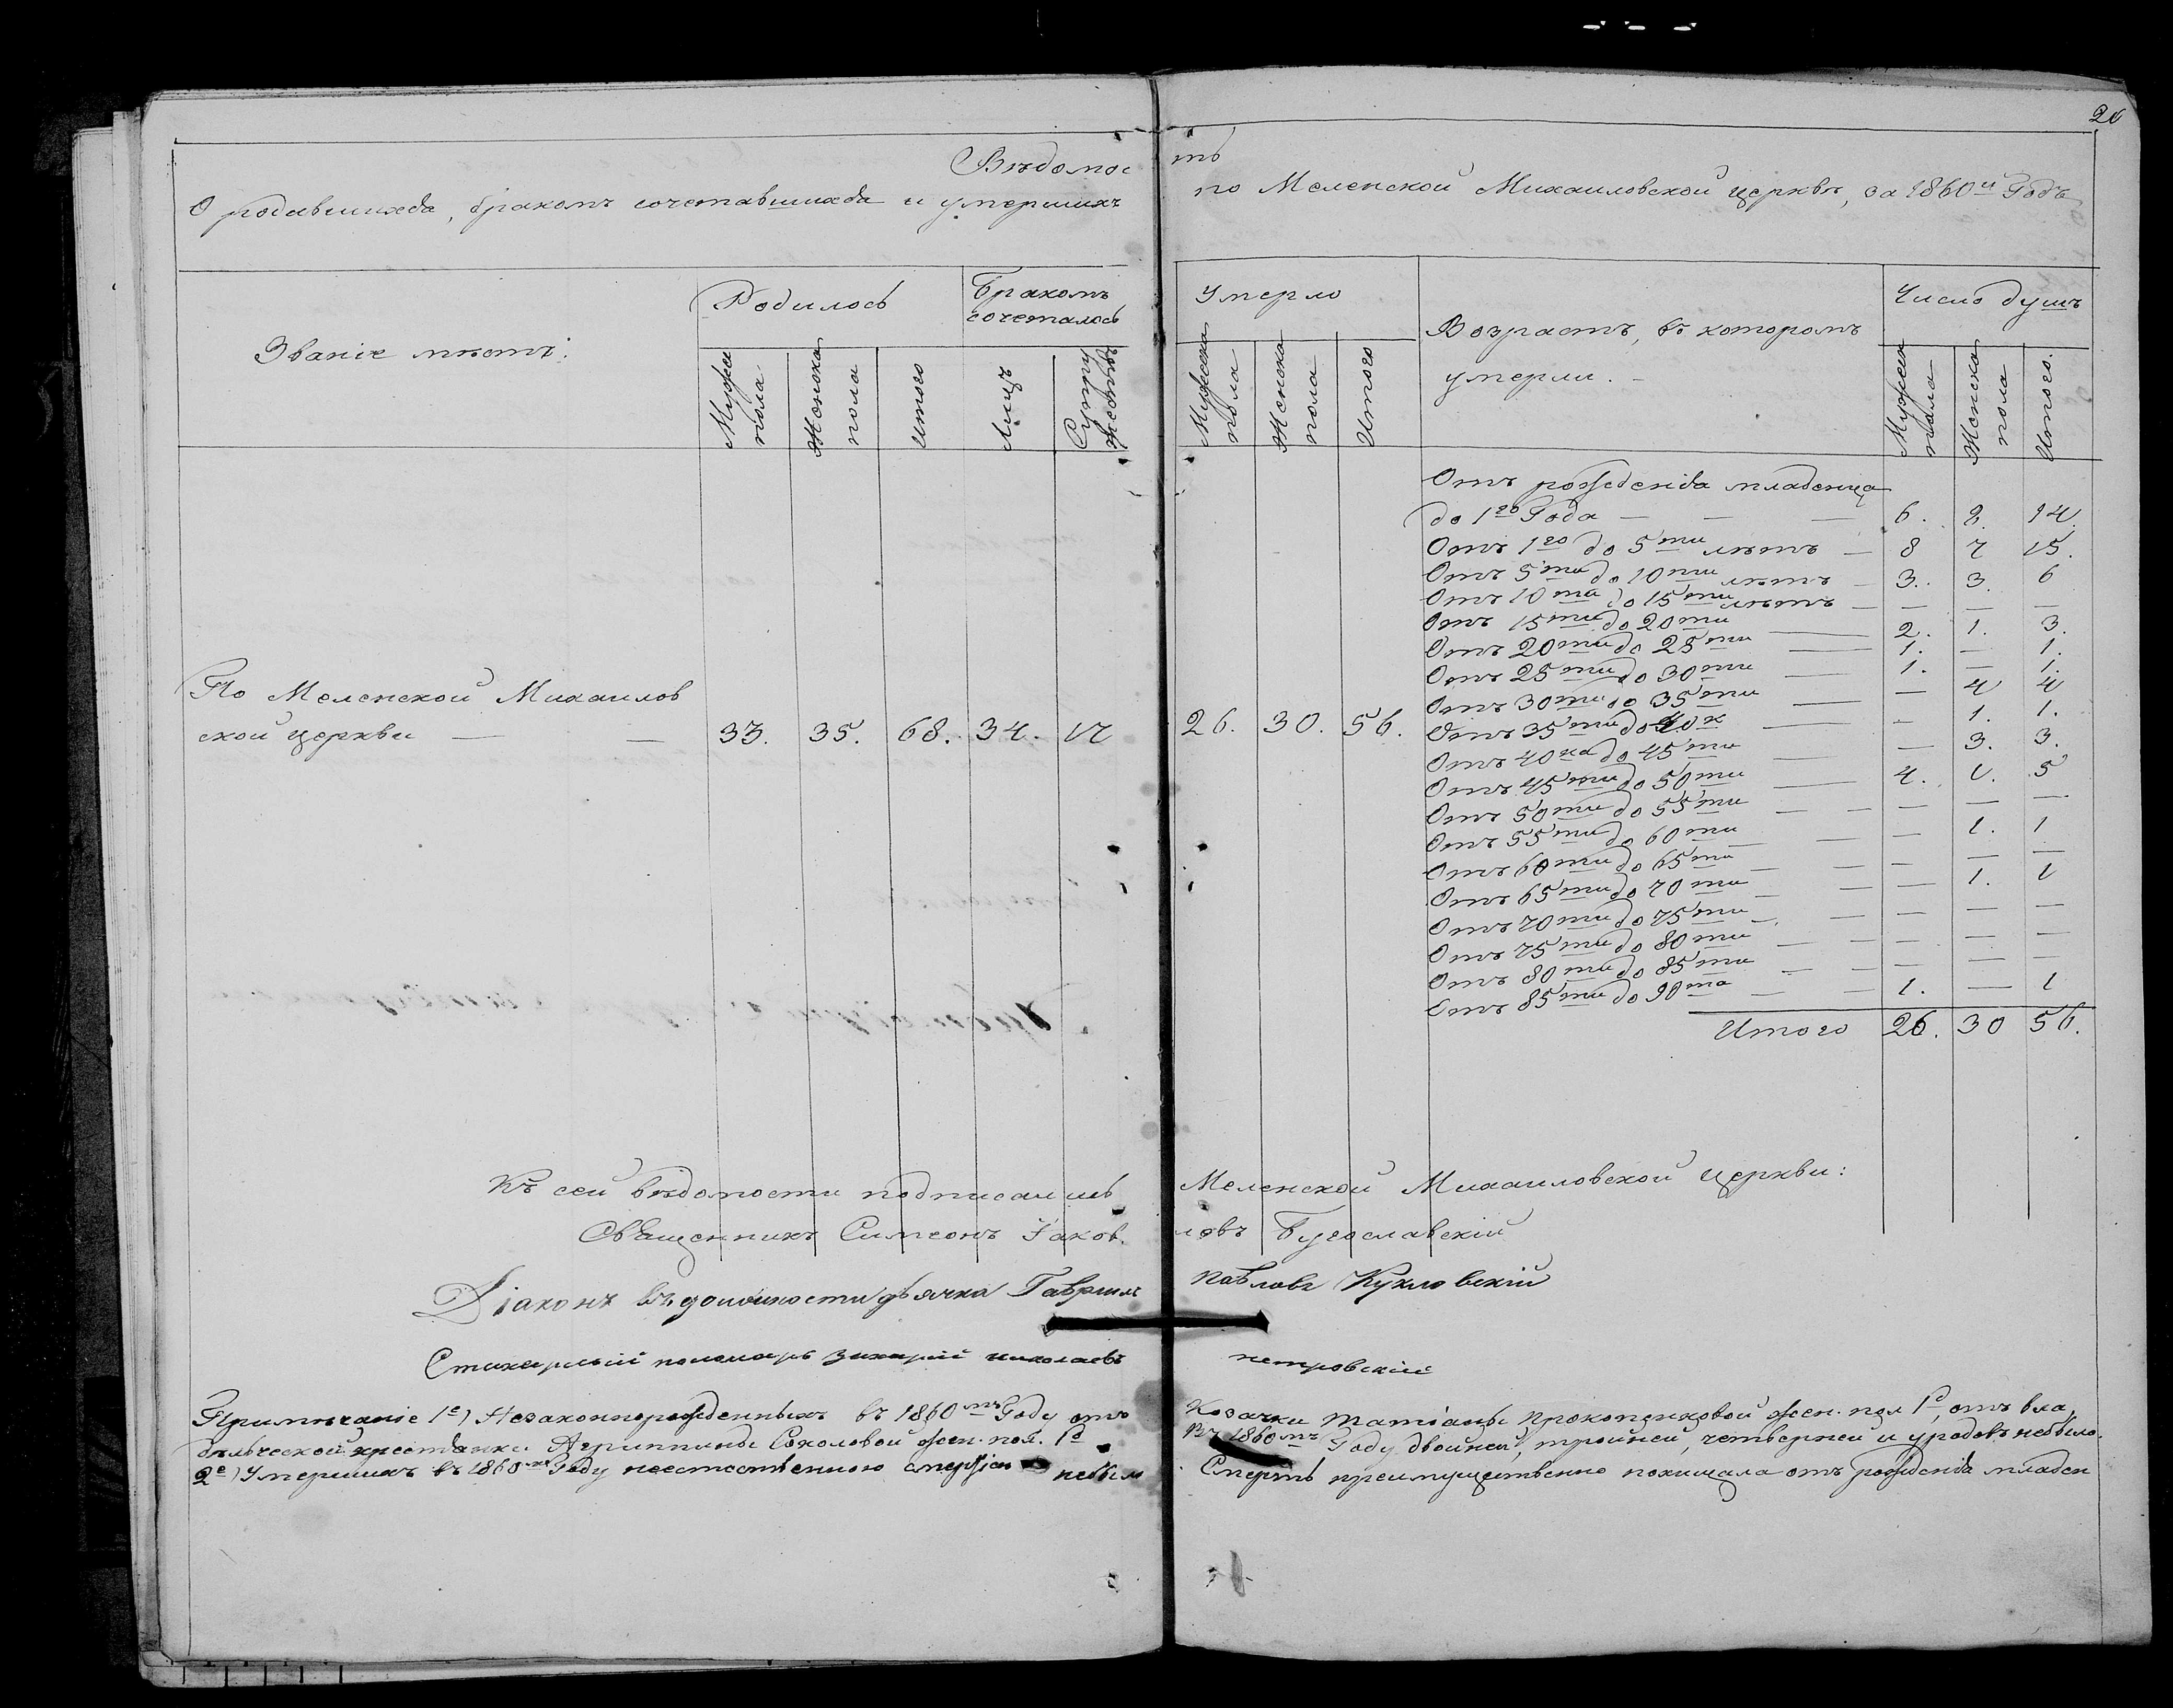 26
Вѣдомость
О родившихся, бракомъ сочетавшихся и умершихъ по Меленской Михаиловской церквѣ, за 1860й Годъ
Званіе мѣстъ:
Родилось
Бракомъ сочеталось
Умерло
Возрастъ, въ которомъ умерли.
Число душъ
Мужеска пола
Женска пола
Итого
Лицъ
Супружествъ
Мужеска пола
Женска пола
Итого
Мужеск пола
Женска пола
Итого.
Отъ рожденія младенца
до 1го Года — — — 6. 8. 14.
Отъ 1го до 5ти лѣтъ — 8 7 15.
Отъ 5ти до 10ти лѣтъ — 3. 3. 6
Отъ 10ти до 15ти лѣтъ — — — —
Отъ 15ти до 20ти — 2. 1. 3.
Отъ 20ти до 25ти — 1. — 1.
Отъ 25ти до 30ти — 1. — 1.
Отъ 30ти до 35ти — — 4 4
Отъ 35ти до 40к — — 1. 1.
Отъ 40ка до 45ти — — 3. 3.
Отъ 45ти до 50ти — 4. 1. 5
Отъ 50ти до 55ти — — — — —
Отъ 55ти до 60ти — — — 1. 1
Отъ 60ти до 65ти — — — — —
Отъ 65ти до 70ти — — — 1. 1
Отъ 70ти до 75ти — — — — —
Отъ 75ти до 80ти — — — — —
Отъ 80ти до 85ти — — — — —
Отъ 85ти до 90та — — 1. — 1
Итого 26. 30 56.
По Меленской Михаилов
ской церкви — — 33. 35. 68. 34. 17 26. 30. 56.
Къ сей вѣдомости подписались Меленской Михаиловской церкви:
Священникъ Симеонъ Іаковлевъ Бугославскій
Діаконъ въ должности дьячка Гавріилъ Павловъ Кукловскій
Стихарный пономарь Захарій Николаевъ Петровскій
Примѣчаніе 1е) Незаконнорожденныхъ въ 1860мъ Году отъ Козачки Татіаны Прокопенковой жен. пол 1а, отъ вла
дѣльческой крестянки Агриппины Соколовой жен. пол. 1а Въ 1860мъ Году двойней, тройней, четверней и уродовъ небыло.
2е) Умершихъ въ 1860мъ Году неестественною смертію небыло Смерть преимущественно похищала отъ рожденія младен